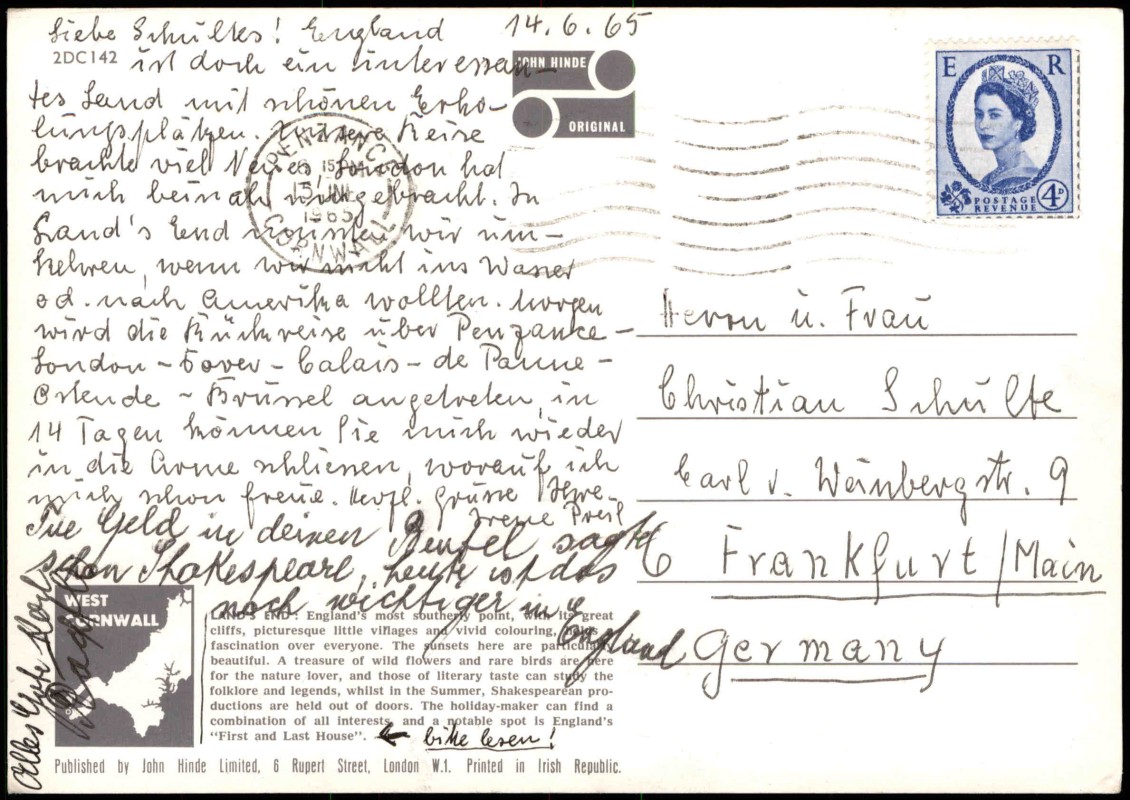 14.6.65
Liebe Schultes! England
2DC142
ist doch ein interessan-
tes Land mit schönen Erho-
lungsplätzen. Unsere Reise
brachte viel Neues. London hat
mich beinah umgebracht. In
Land's End mussten wir um-
kehren, wenn wir nicht ins Wasser
od. nach Amerika wollten. Morgen
wird die Rückreise über Penzance -
London - Dover - Calais - de Panne -
Ostende - Brüssel angetreten, in
14 Tagen können Sie mich wieder
in die Arme schliessen, worauf ich
mich schon freue. Herzl. Grüsse Ihre
Irene Preil
Tue Geld in deinen Beutel sagte
schon Shakespeare, heute ist das
noch wichtiger in England
Alles Gute
JOHN HINDE
ORIGINAL
PENZANCE
15 JUN
1965
CORNWALL
E R
POSTAGE
REVENUE
4D
Herrn u. Frau
Christian Schulte
Carl v. Weinbergstr. 9
6 Frankfurt/Main
Germany
WEST
CORNWALL
LAND'S END: England's most southerly point, with its great
cliffs, picturesque little villages and vivid colouring, holds
fascination over everyone. The sunsets here are particularly
beautiful. A treasure of wild flowers and rare birds are here
for the nature lover, and those of literary taste can study the
folklore and legends, whilst in the Summer, Shakespearean pro-
ductions are held out of doors. The holiday-maker can find a
combination of all interests, and a notable spot is England's
"First and Last House".
← bitte lesen!
Published by John Hinde Limited, 6 Rupert Street, London W.1. Printed in Irish Republic.